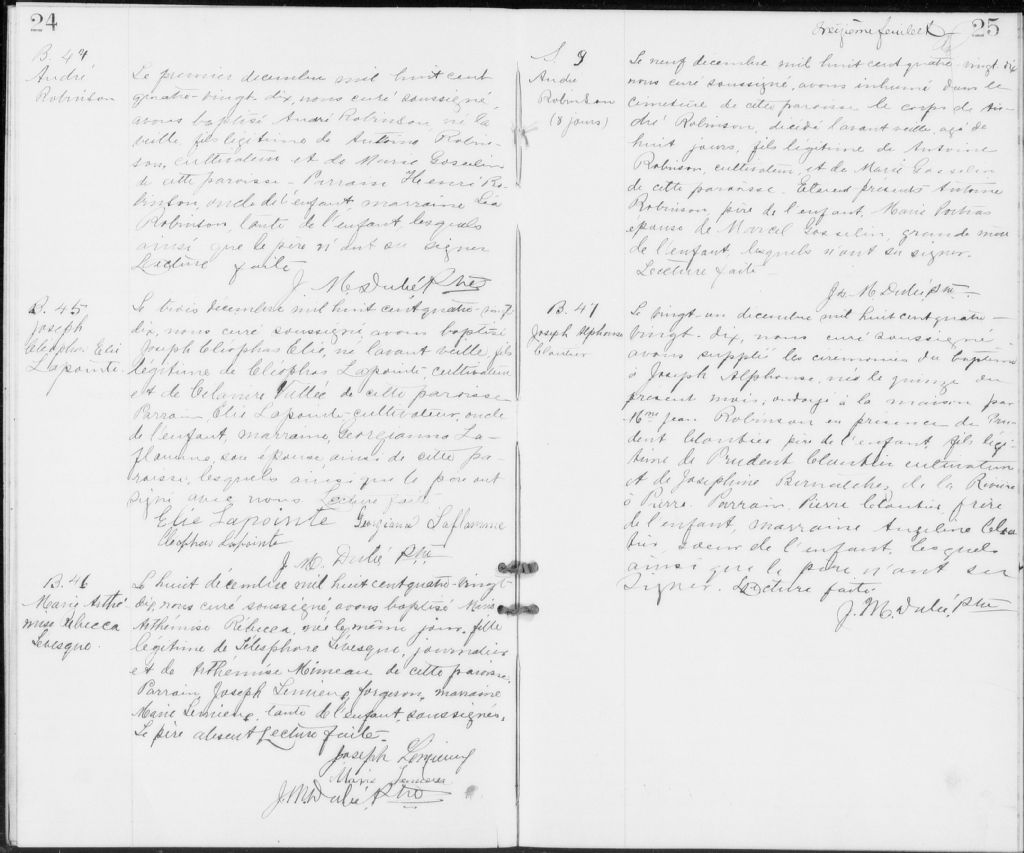 24
B. 44
André
Robinson
Le premier décembre mil huit cent
quatre-vingt-dix, nous curé soussigné,
avons baptisé André Robinson né la
veille, fils légitime de Antoine Robin-
son, cultivateur et de Marie Gosselin
de cette paroisse - Parrain Henri Ro-
binson, oncle de l'enfant, marraine
Robinson, tante de l'enfant, lesquels
ainsi que le père n'ont su signer
Lecture faite
J. M. Dubé Ptre
B. 45
Joseph
Cléophas Elie
Lapointe
Le trois décembre mil huit cent quatre-vingt
dix, nous curé soussigné, avons baptisé
Joseph Cléophas Elie, né l'avant veille, fils
légitime de Cléophas Lapointe, cultivateur
et de Celanire Vallée de cette paroisse
Parrain Elie Lapointe cultivateur, oncle
de l'enfant, marraine, Georgianna La-
flamme, son épouse, aussi de cette pa-
roisse, lesquels ainsi que le père ont
signé avec nous Lecture faite
Elie Lapointe Georgiana Laflamme
Cleophas Lapointe
J. M. Dubé Ptre
B. 46
Marie Arthé
mise Rébecca
Levesque.
Le huit décembre mil huit cent quatre-vingt
dix, nous curé soussigné, avons baptisé Marie
Arthémise Rébecca, née le même jour, fille
légitime de Télesphore Lévesque, journalier
et de Arthémise Mimeau de cette paroisse.
Parrain, Joseph Lemieux, forgeron, marraine
Marie Lemieux, tante de l'enfant, soussignés.
Le père absent Lecture faite.
Joseph Lemieux
Marie Lemieux
J. M. Dubé, Ptre
treizième feuillet
25
S. 9
André
Robinson
(8 jours)
Le neuf décembre mil huit cent quatre-vingt-dix
nous curé soussigné, avons inhumé dans le
cimetière de cette paroisse le corps de An-
dré Robinson, décédé l'avant veille, agé de
huit jours, fils légitime de Antoine
Robinson, cultivateur, et de Marie Gosselin
de cette paroisse. Etaient présents Antoine
Robinson, père de l'enfant, Marie Poitras
épouse de Marcel Gosselin, grande mère
de l'enfant, lesquels n'ont su signer.
Lecture faite
J. M. Dubé Ptre
B. 47
Joseph Alphonse
Cloutier
Le vingt-un décembre mil huit cent quatre-
vingt-dix, nous curé soussigné
avons suppléé les cérémonies du baptême
à Joseph Alphonse, né le quinze du
présent mois, ondoyé à la maison par
Mme Jean Robinson en présence de Pru-
dent Cloutier père de l'enfant, fils légi-
time de Prudent Cloutier cultivateur
et de Josephine Bernatchez de la Rivière
à Pierre. Parrain, Pierre Cloutier, frère
de l'enfant, marraine Angeline Clou-
tier, soeur de l'enfant, lesquels
ainsi que le père n'ont su
signer. Lecture faite
J. M. Dubé, Ptre